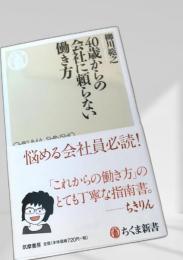 柳川範之
40歳からの
会社に頼らない
働き方
悩める会社員必読!
「これからの働き方」の
とても丁寧な指南書。
——ちきりん
筑摩書房
定価(本体720円+税)
ちくま新書